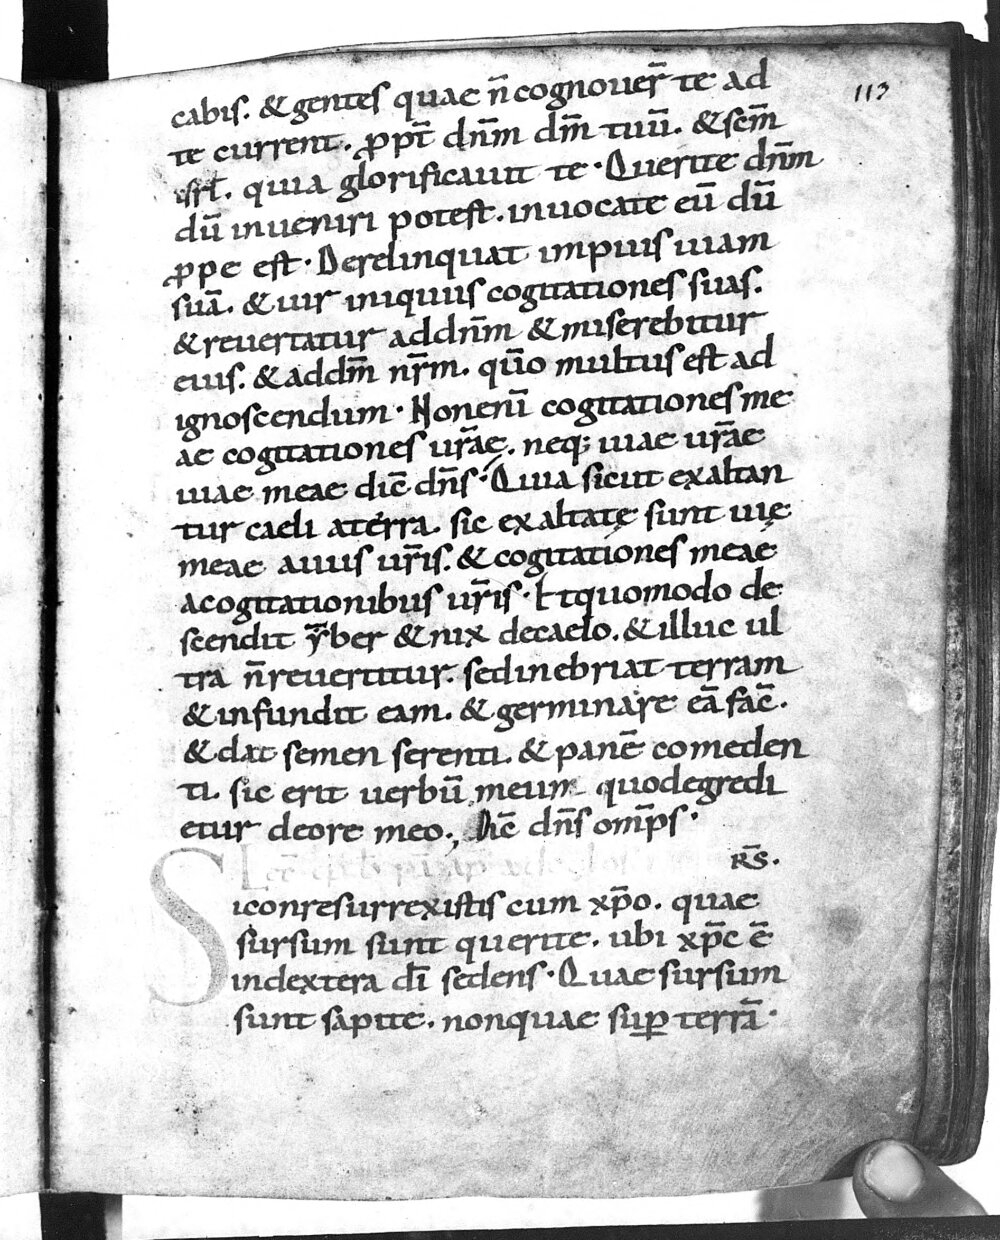 113
cabis. & gentes quae n̄ cognouer̄ te ad
te current. ꝓpt̄ dn̄m dm̄ tuū. & scm̄
isrł. quia glorificauit te · Querite dn̄m
dū inueniri potest. inuocate eū dū
ꝓpe est · Derelinquat impius uiam
suā. & uir iniquus cogitationes suas.
& reuertatur ad dn̄m & miserebitur
eius. & ad dm̄ nr̄m. qūo multus est ad
ignoscendum · Non enī cogitationes me
ae cogitationes ur̄ae. neq; uiae ur̄ae
uiae meae dic̄ dn̄s · Quia sicut exaltan
tur caeli a terra. sic exaltatę sunt uię
meae a uiis ur̄is. & cogitationes meae
a cogitationibus ur̄is · Et quomodo de
scendit ẏber & nix de caelo. & illuc ul
tra n̄ reuertitur. sed inebriat terram
& infundit eam. & germinare eā fac̄.
& dat semen serenti. & panē comeden
ti. sic erit uerbū meum quod egredi
etur de ore meo. Dic̄ dn̄s omp̄s ·
R̄S.
Si conresurrexistis cum xp̄o. quae
sursum sunt querite. ubi xp̄c ē
in dextera dī sedens · Quae sursum
sunt sapite. non quae suꝑ terrā ·